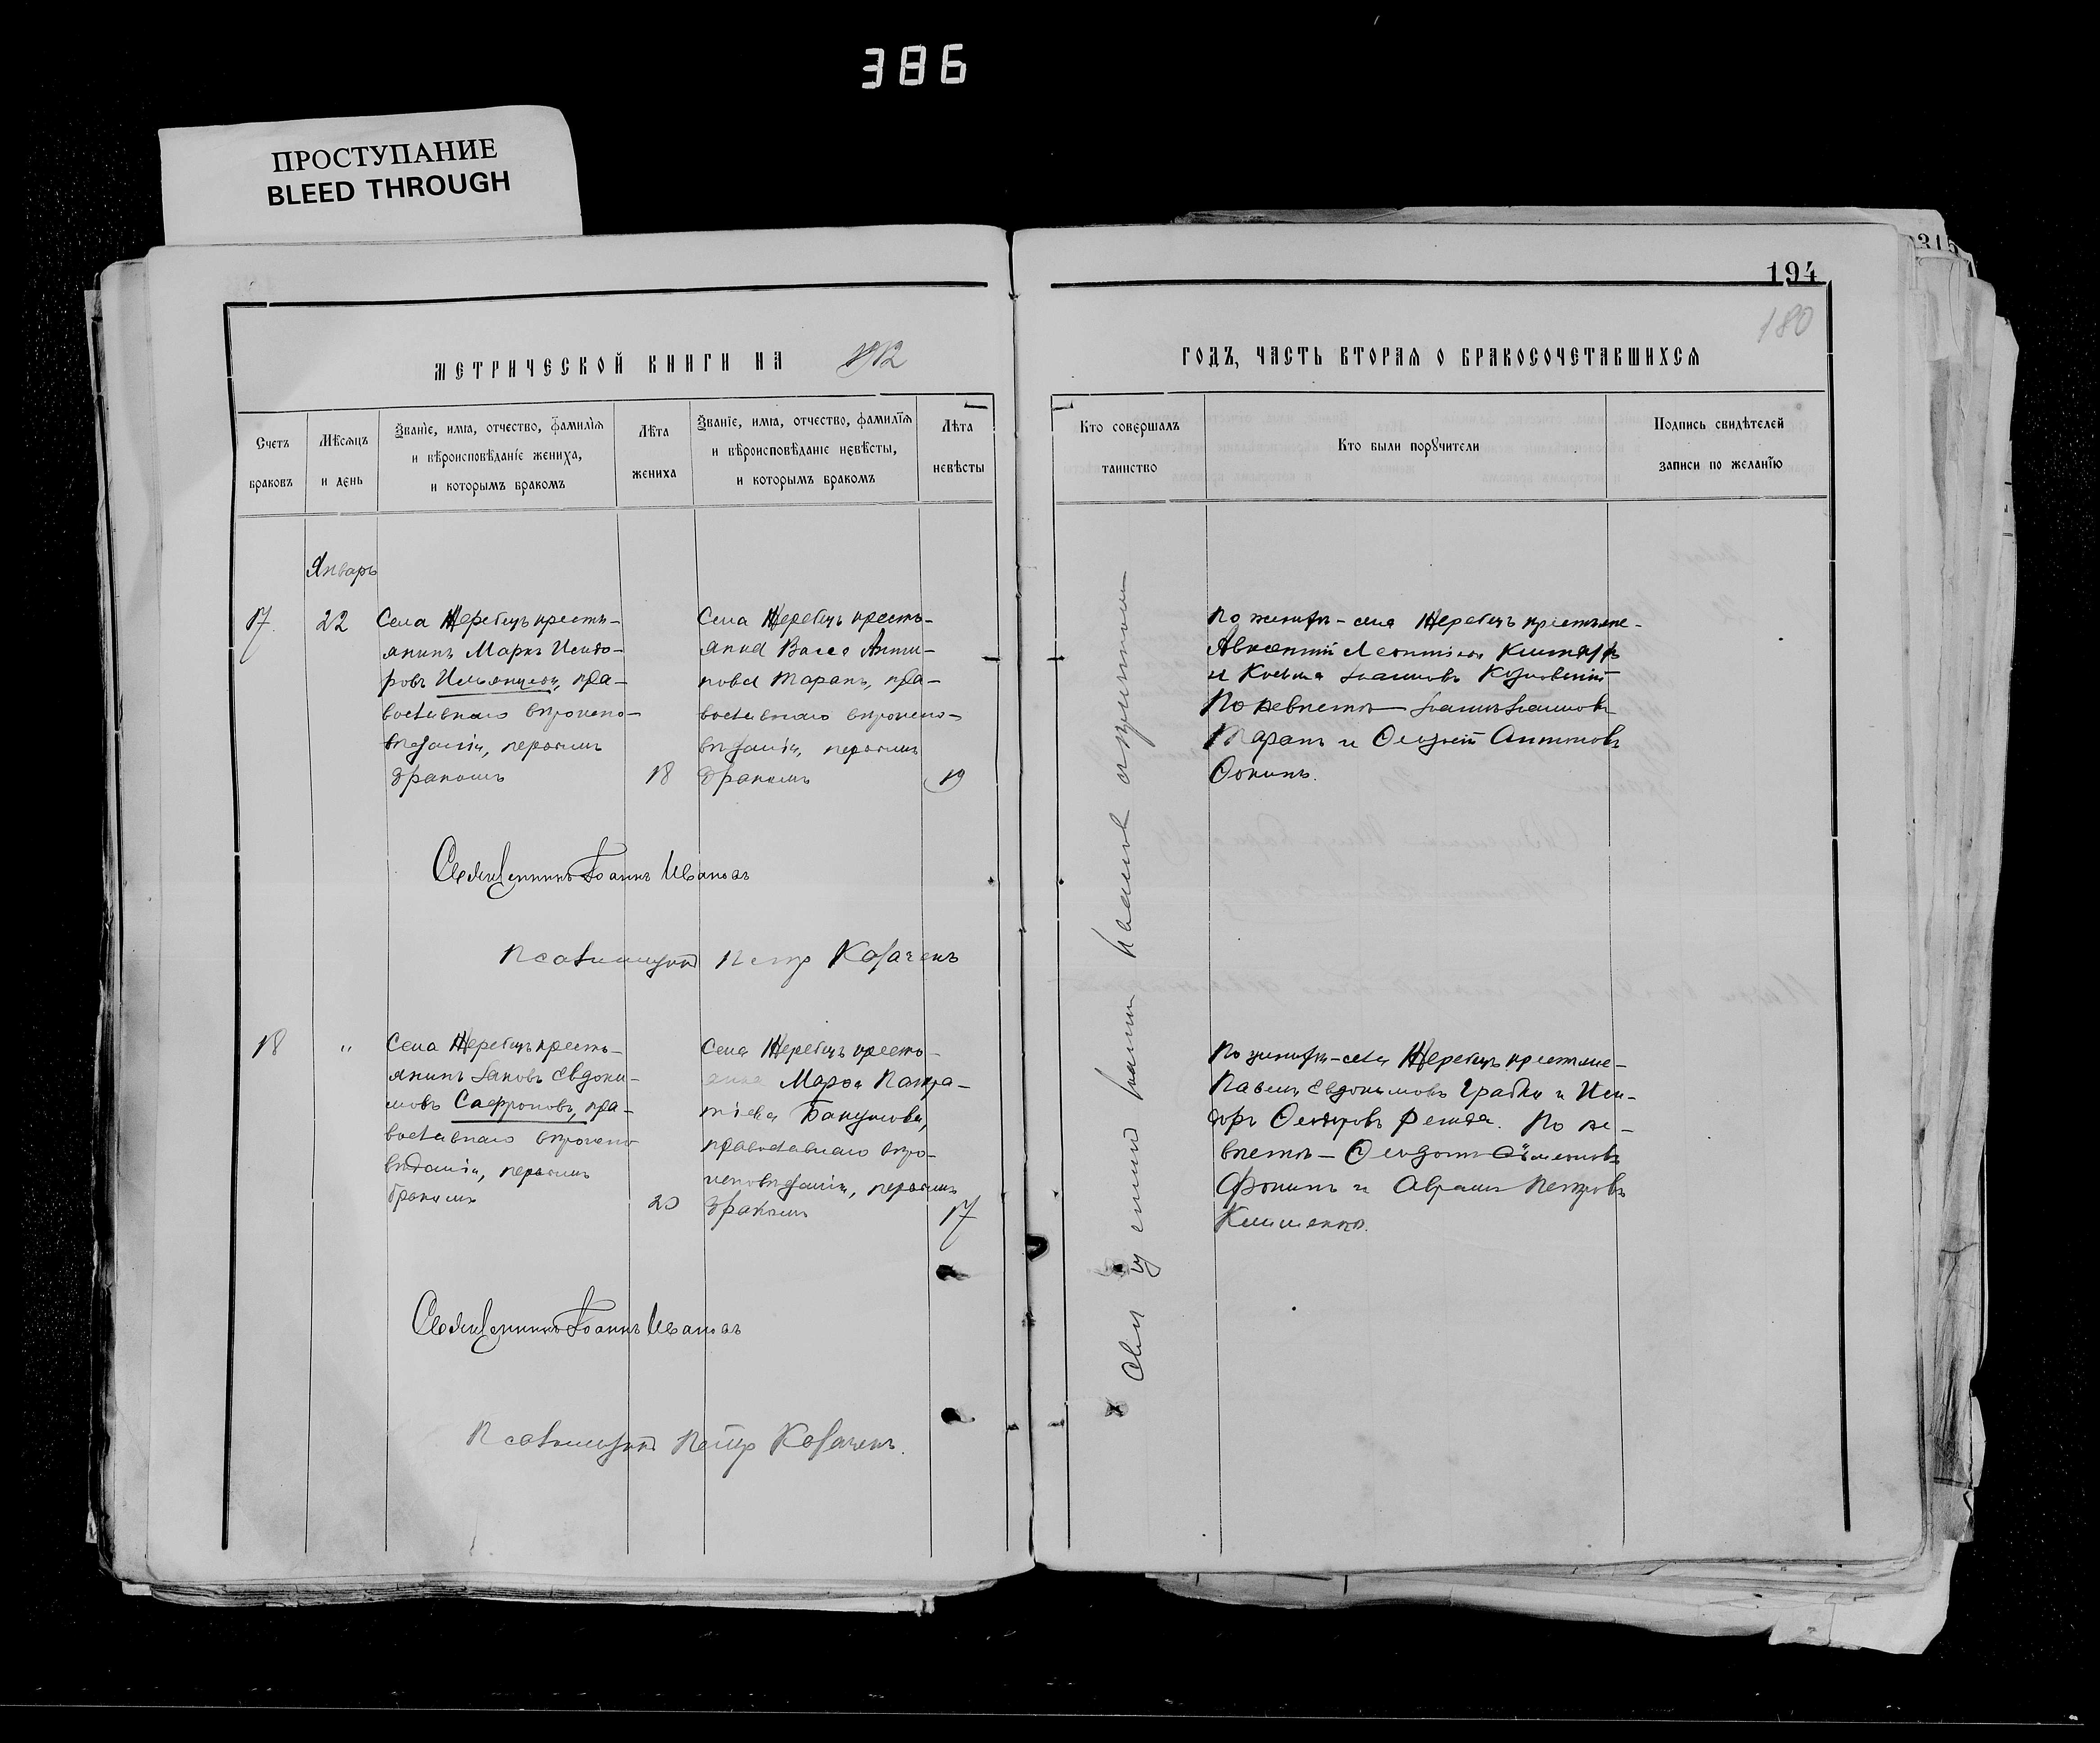 386
ПРОСТУПАНИЕ
BLEED THROUGH
315
194
180
МЕТРИЧЕСКОЙ КНИГИ НА 1912
ГОДЪ, ЧАСТЬ ВТОРАЯ О БРАКОСОЧЕТАВШИХСЯ
Счетъ
браковъ
Мѣсяцъ
и день
Званіе, имя, отчество, фамилія
и вѣроисповѣданіе жениха,
и которымъ бракомъ
Лѣта
жениха
Званіе, имя, отчество, фамилія
и вѣроисповѣданіе невѣсты,
и которымъ бракомъ
Лѣта
невѣсты
Кто совершалъ
таинство
Кто были поручители
Подпись свидѣтелей
записи по желанію
Январь
17.
22
Села Жеребецъ кресть-
янинъ Маркъ Исидо-
ровъ пра-
вославнаго вѣроиспо-
вѣданія, первымъ
бракомъ
18
Села Жеребецъ кресть-
янка Васса Анти-
пова Таранъ, пра-
вославнаго вѣроиспо-
вѣданія, первымъ
бракомъ
19
По женихѣ - села Жеребецъ крестьяне-
Авксентій Леонтіевъ
и Косьма Іоанновъ
По невѣстѣ - Іоаннъ Іоанновъ
Таранъ и Антиповъ
Фокинъ.
Священникъ Іоаннъ Ивановъ
Псаломщикъ Петръ Козаченъ
18
"
Села Жеребецъ кресть-
янинъ Іаковъ Евдоки-
мовъ Сафроновъ, пра-
вославнаго вѣроиспо-
вѣданія, первымъ
бракомъ
20
Села Жеребецъ кресть-
янка Марѳа Панкра-
тіева Бакумова,
православнаго вѣро-
исповѣданія, первымъ
бракомъ
17
По женихѣ - села Жеребецъ крестьяне-
Павелъ Евдокимовъ Грабко и Иси-
доръ Ѳеодоровъ По не-
вѣстѣ - Симеоновъ
Фокинъ и Авраамъ Петровъ
Клименко.
Священникъ Іоаннъ Ивановъ
Псаломщикъ Петръ Козаченъ.
Священникъ Іоаннъ Ивановъ